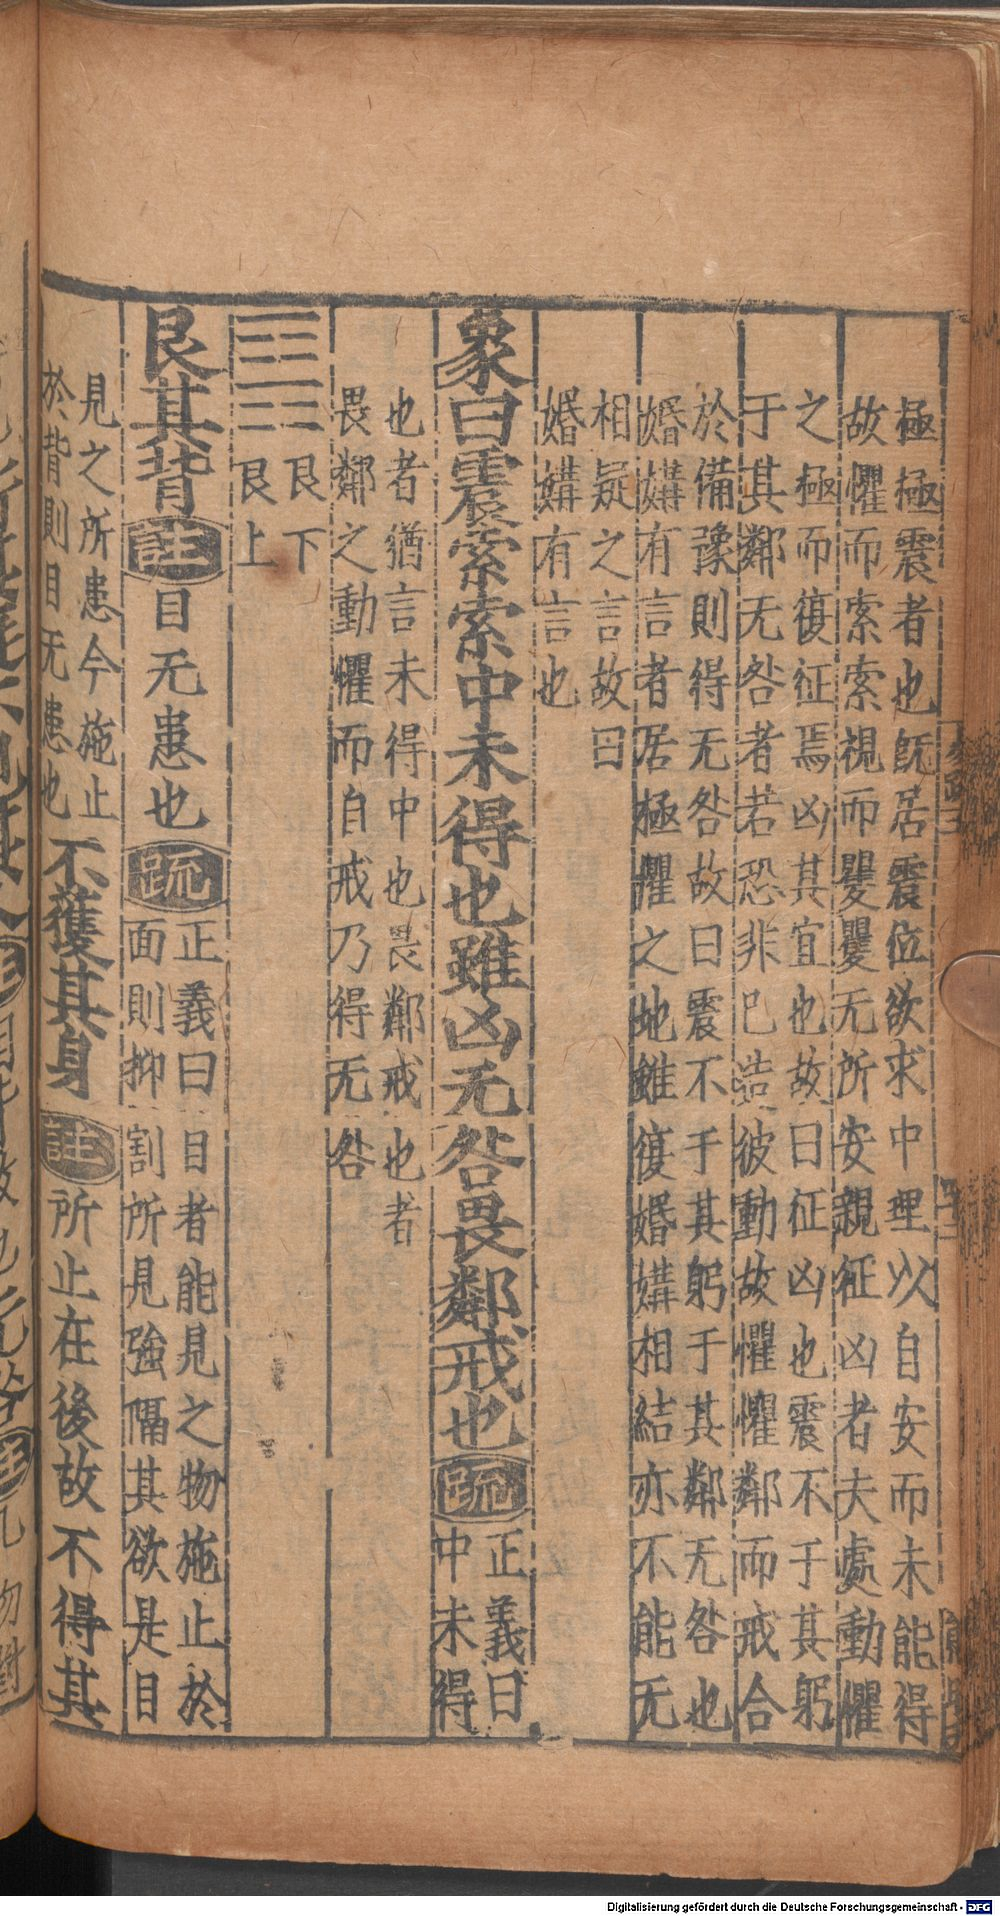 極極震者也旣居震位欲求中理以自安而未能得
故懼而索索視而矍矍无所安親征凶者夫處動懼
之極而復征焉凶其宜也故曰征凶也震不于其躬
于其鄰无咎者若恐非已造彼動故懼懼鄰而戒合
於備豫則得无咎故曰震不于其躬于其鄰无咎也
婚媾有言者居極懼之地雖復婚媾相結亦不能无
相疑之言故曰
婚媾有言也
象曰震索索中未得也雖凶无咎畏鄰戒也疏
正義曰
中未得
也者猶言未得中也畏鄰戒也者
畏鄰之動懼而自戒乃得无咎
艮下
艮上
艮其背註目无患也疏
正義曰目者能見之物施止於
面則抑割所見強隔其欲是目
見之所患今施止
於背則目无患也
不獲其身註所止在後故不得其
Digitalisierung gefördert durch die Deutsche Forschungsgemeinschaft - DFG